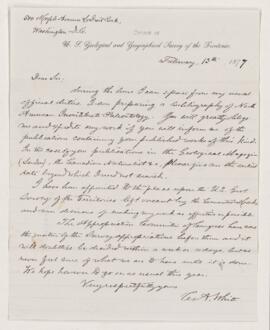 Washington D.C.
U. S. Geological and Geographical Survey of the Territories.
February 13th 1877
Dear Sir.
During the time I can spare from my usual
official duties, I am preparing a bibliography of North
American Invertebrate Paleontology. You will greatly oblige
me and expedite my work if you will inform me of the
publications containing your published works of this kind.
In the case of your publications in the Geological Magazine
(London), the Canadian Naturalist &c, please give me the earliest
date beyond which I need not search.
I have been appointed to the place upon the U.S. Geol
Survey of the Territories left vacant by the lamented Meek
and am desirous of making my work as effective as possible.
The Appropriation Committee of Congress have
the matter of the Survey appropriations before them and it
will doubtless be decided within a week or ten days but we
never feel sure of what we are to have until it is done.
We hope however to go on as usual this year.
Very respectfully yours
C. A. White